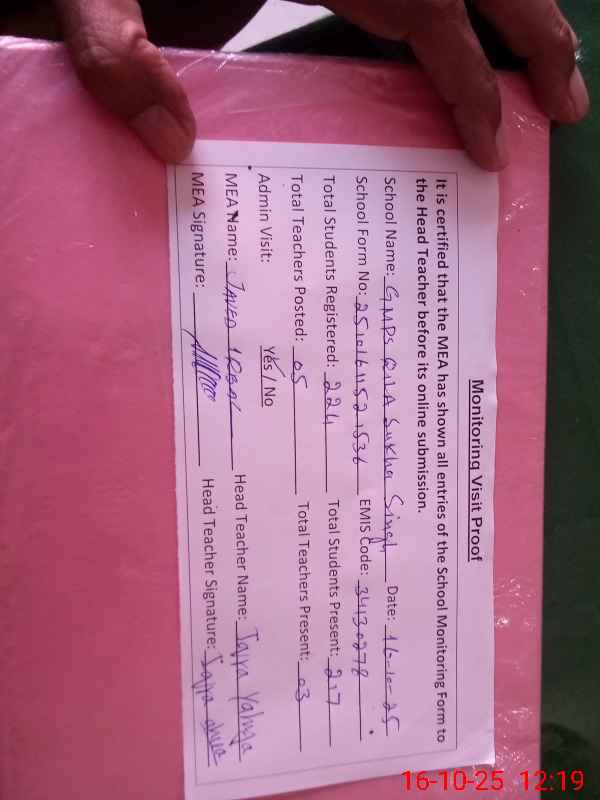 Monitoring Visit Proof
It is certified that the MEA has shown all entries of the School Monitoring Form to
the Head Teacher before its online submission.
School Name: GMPS QILA Sukha Singh Date: 16-10-25
School Form No: EMIS Code: 34130278
Total Students Registered: 224 Total Students Present: 217
Total Teachers Posted: 05 Total Teachers Present: 03
Admin Visit: Yes / No
MEA Name: JAVED IQBAL Head Teacher Name: Yahya
MEA Signature: Head Teacher Signature:
16-10-25 12:19